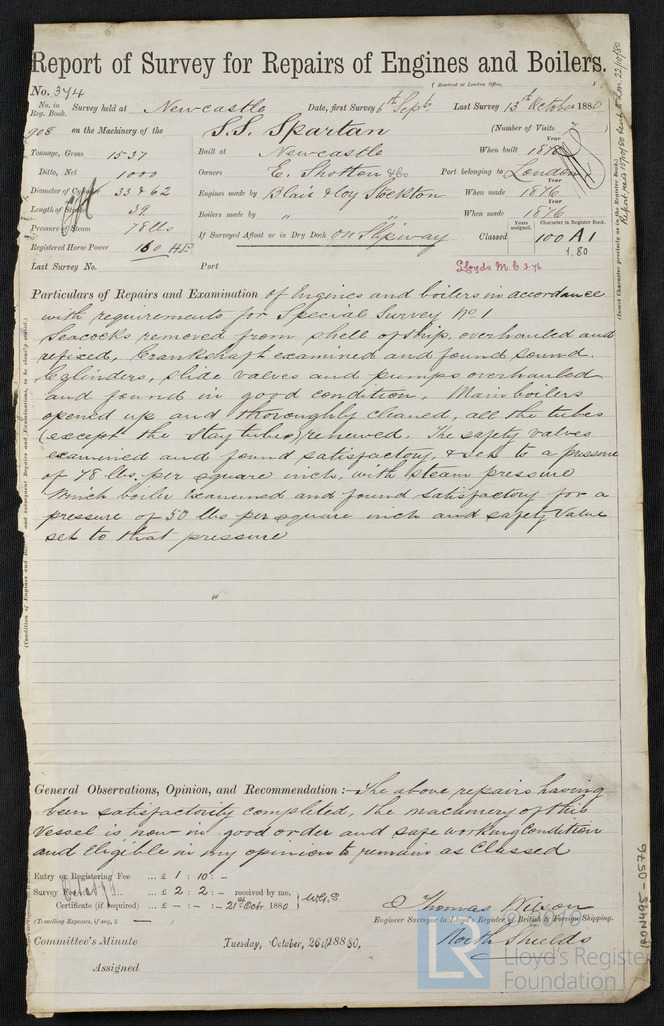 Report of Survey for Repairs of Engines and Boilers.
No. 374 (Received at London Office,
No. in Reg. Book. Survey held at Newcastle Date, first Survey 6th Sept Last Survey 13th October 1880
908 on the Machinery of the S.S. Spartan (Number of Visits
Tonnage, Gross 1537 Built at Newcastle When built Year 1876
Ditto, Net 1000 Owners E. Shotton & Co Port belonging to London
Diameter of Cylinder 33 & 62 Engines made by Blair & Coy Stockton When made Year 1876
Length of Stroke 39 Boilers made by " " When made Year 1876
Pressure of Steam 78 lbs If Surveyed Afloat or in Dry Dock on Slipway Classed Years assigned. 100 Character in Register Book. A1
Registered Horse Power 160 HP. 1,80
Last Survey No. Port Lloyds M.C 3.76
Particulars of Repairs and Examination of Engines and boilers in accordance
with requirements for Special Survey No 1
Seacocks removed from shell of ship, overhauled and
refixed, Crankshaft examined and found sound.
Cylinders, slide valves and pumps overhauled
and found in good condition, Main boilers
opened up and thoroughly cleaned, all the tubes
(except the stay tubes) renewed. The safety valves
examined and found satisfactory, & set to a pressure
of 78 lbs. per square inch, with steam pressure
Winch boiler examined and found satisfactory for a
pressure of 50 lbs per square inch and safety valve
set to that pressure
"
General Observations, Opinion, and Recommendation :— The above repairs having
been satisfactorily completed, the machinery of this
Vessel is now in good order and safe working condition
and Eligible in my opinion to remain as Classed
Entry or Registering Fee ... £ 1 : 10 : -
Survey Fee ... £ 2 : 2 : - received by me, W.G.S
Certificate (if required) ... £ - : - : - 21st Octr 1880
(Travelling Expenses, if any, £ —)
Thomas Wilson
Engineer Surveyor to Lloyd's Register of British & Foreign Shipping.
North Shields
Committee's Minute Tuesday, October, 26th 1880.
Assigned
(Insert Character precisely as in the Register Book.)
Report recd 15/10/80 sent to Lon 22/10/80
IRON495-0576
LR
Lloyd's Register
Foundation